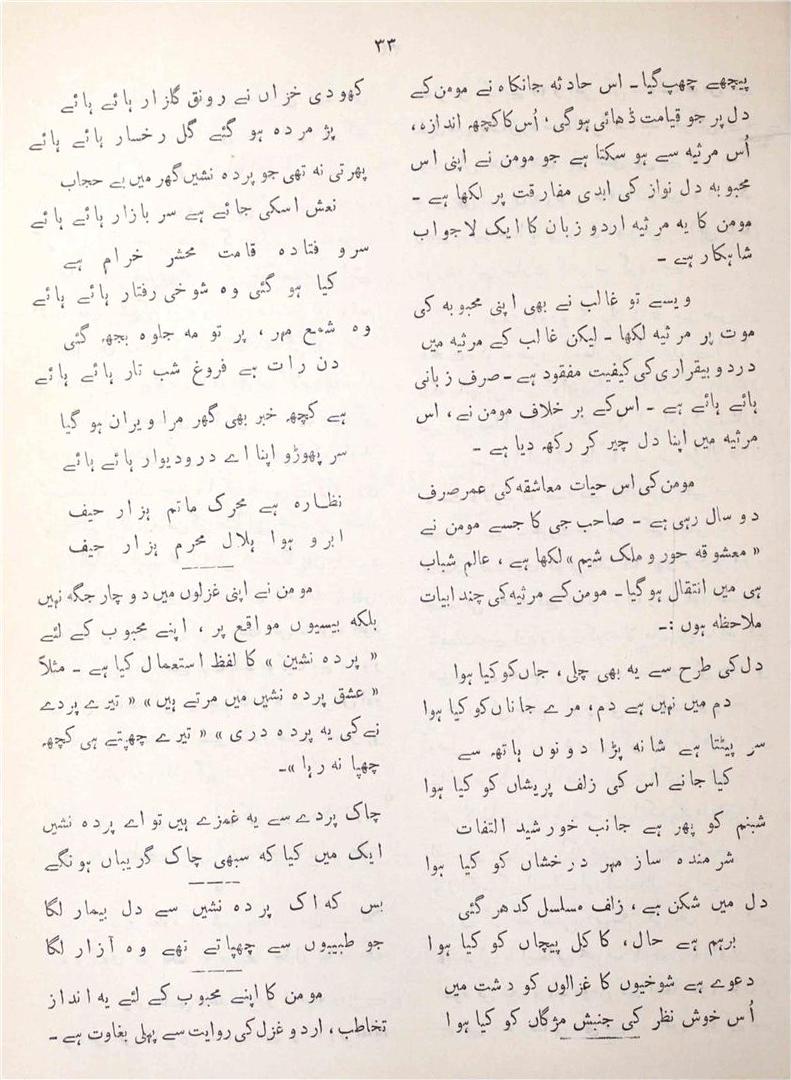 ۳۳
پیچھے چھپ گیا۔ اس حادثہ جانکاہ نے مومن کے
دل پر جو قیامت ڈھائی ہوگی، اُس کا کچھ اندازہ،
اُس مرثیہ سے ہو سکتا ہے جو مومن نے اپنی اس
محبوبہ دل نواز کی ابدی مفارقت پر لکھا ہے ۔
مومن کا یہ مرثیہ اردو زبان کا ایک لاجواب
شاہکار ہے ۔
ویسے تو غالب نے بھی اپنی محبوبہ کی
موت پر مرثیہ لکھا ۔ لیکن غالب کے مرثیہ میں
درد و بیقراری کی کیفیت مفقود ہے ۔ صرف زبانی
ہائے ہائے ہے ۔ اس کے بر خلاف مومن نے، اس
مرثیہ میں اپنا دل چیر کر رکھ دیا ہے ۔
مومن کی اس حیات معاشقہ کی عمر صرف
دو سال رہی ہے ۔ صاحب جی کا جسے مومن نے
« معشوقہ حور و ملک شیم » لکھا ہے ، عالم شباب
ہی میں انتقال ہو گیا ۔ مومن کے مرثیہ کی چند ابیات
ملاحظہ ہوں :۔
دل کی طرح سے یہ بھی چلی ، جاں کو کیا ہوا
دم میں نہیں ہے دم، مرے جاناں کو کیا ہوا
سر پیٹتا ہے شانہ پڑا دونوں ہاتھ سے
کیا جانے اس کی زلف پریشاں کو کیا ہوا
شبنم کو پھر ہے جانب خورشید التفات
شرمندہ ساز مہر درخشاں کو کیا ہوا
دل میں شکن ہے ، زلف مسلسل کدھر گئی
برہم ہے حال، کاکل پیچاں کو کیا ہوا
دعوے ہے شوخیوں کا غزالوں کو دشت میں
اُس خوش نظر کی جنبش مژگاں کو کیا ہوا
کھودی خزاں نے رونق گلزار ہائے ہائے
پژ مردہ ہو گئے گل رخسار ہائے ہائے
پھرتی نہ تھی جو پردہ نشیں گھر میں بے حجاب
نعش اسکی جائے ہے سر بازار ہائے ہائے
سرو فتادہ قامت محشر خرام ہے
کیا ہو گئی وہ شوخی رفتار ہائے ہائے
وہ شمع مہر ، پر تو مہ جلوہ بجھ گئی
دن رات ہے فروغ شب تار ہائے ہائے
ہے کچھ خبر بھی گھر مرا ویران ہو گیا
سر پھوڑو اپنا اے درو دیوار ہائے ہائے
نظارہ ہے محرک ماتم ہزار حیف
ابرو ہوا ہلال محرم ہزار حیف
مومن نے اپنی غزلوں میں دو چار جگہ نہیں
بلکہ بیسیوں مواقع پر ، اپنے محبوب کے لئے
« پردہ نشین » کا لفظ استعمال کیا ہے ۔ مثلاً
« عشق پردہ نشیں میں مرتے ہیں » « تیرے پردے
نے کی یہ پردہ دری » « تیرے چھپتے ہی کچھ
چھپا نہ رہا »۔
چاک پردے سے یہ غمزے ہیں تو اے پردہ نشیں
ایک میں کیا کہ سبھی چاک گریباں ہونگے
بس کہ اک پردہ نشیں سے دل بیمار لگا
جو طبیبوں سے چھپاتے تھے وہ آزار لگا
مومن کا اپنے محبوب کے لئے یہ انداز
تخاطب ، اردو غزل کی روایت سے پہلی بغاوت ہے ۔